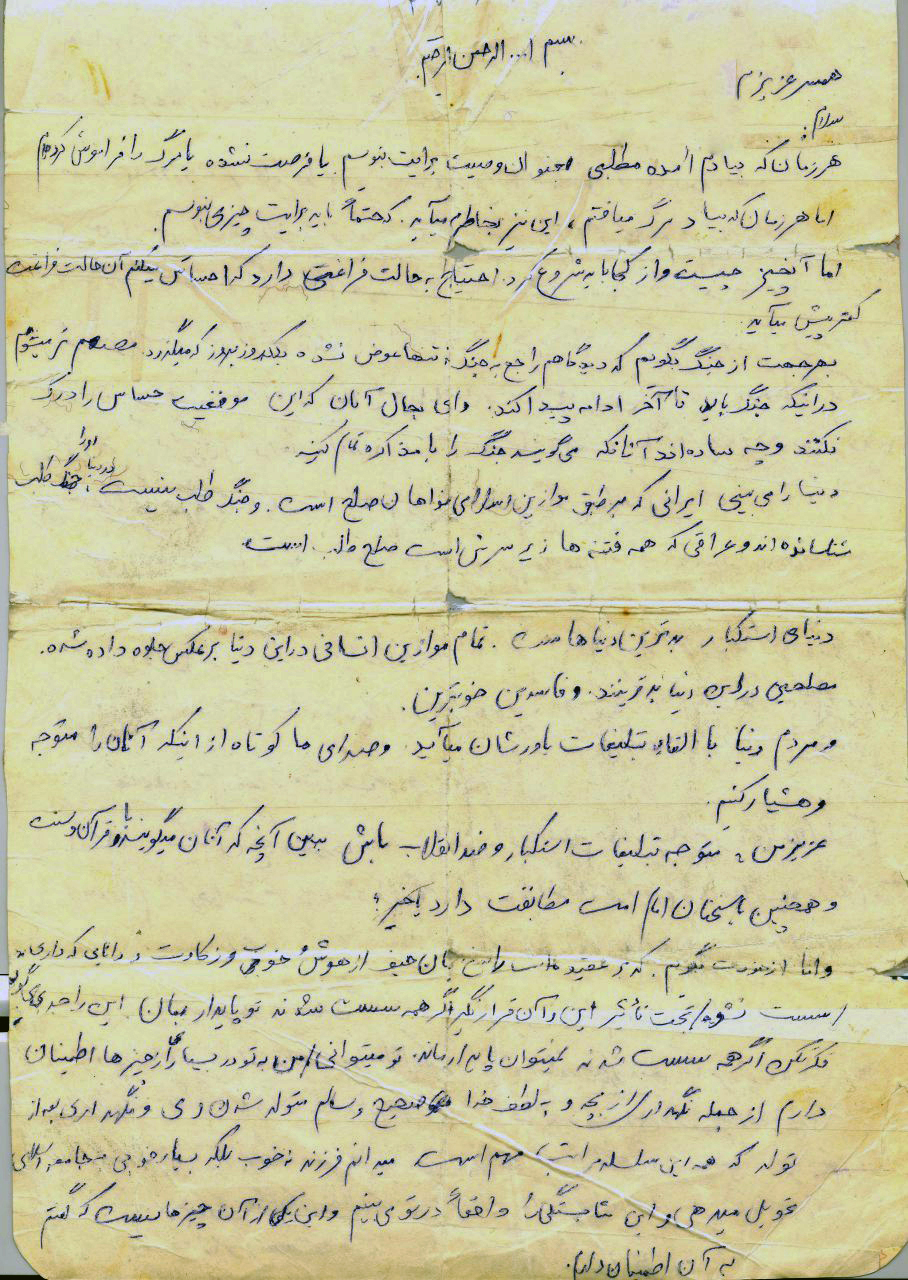 بسم ا... الرحمن الرحیم
همسر عزیزم
سلام:
هر زمان که بیادم آمده مطلبی بعنوان وصیت برایت بنویسم یا فرصت نشده یا مرگ را فراموش کرده‌ام
اما هر زمان که بیاد مرگ میافتم، این نیز بخاطرم میآید. که حتماً باید برایت چیزی بنویسم.
اما آنچیز چیست و از کجا باید شروع کرد. احتیاج به حالت فراغتی دارد که احساس میکنم آن حالت فراغت
کمتر پیش میآید.
بهر جهت از جنگ بگویم که دیدگاهم راجع به جنگ نه تنها عوض نشده بلکه روز بروز که میگذرد مصمم تر میشوم
در اینکه جنگ باید تا آخر ادامه پیدا کند. وای بحال آنان که این موقعیت حساس را درک
نکنند و چه ساده‌اند آنانکه می‌گویند جنگ را با مذاکره تمام کنید.
دنیا را می بینی ایرانی که بر طبق موازین اسلامی خواهان صلح است. و جنگ طلب نیست، او را در دنیا جنگ طلب
شناسانده اند و عراقی که همه فتنه ها زیر سرش است صلح طلب است.
دنیای استکبار بدترین دنیاهاست. تمام موازین انسانی در این دنیا برعکس جلوه داده شده.
مصلحین در این دنیا بدترینند. و فاسدین خوبترین.
و مردم دنیا با القاء تبلیغات باورشان میآید. و صدای ما کوتاه از اینکه آنان را متوجه
و هشیار کنیم.
عزیز من، متوجه تبلیغات استکبار و ضد انقلاب باش ببین آنچه که آنان میگویند با قرآن و سنت
و همچنین با سخنان امام امت مطابقت دارد یا خیر؟
و اما از خودت بگویم. که در عقیده ات راسخ بمان حیف از هوش خوب و ذکاوت و دانایی که داری
سست نشو، تحت تأثیر این و آن قرار نگیر اگر همه سست شدند تو پایدار بمان این را جدی می‌گویم
فکر نکن اگر همه سست شدند نمیتوان پایدار ماند. تو میتوانی، من به تو در بسیاری از چیزها اطمینان
دارم از جمله نگهداری از بچه و به لطف خدا صحیح و سالم متولد شدن وی و نگهداری بعد از
تولد که همه این سلسله مراتب مهم است میدانم فرزند نه خوب بلکه بسیار خوبی به جامعه اسلامی
تحویل میدهی و این شایستگی را واقعاً در تو می بینم و این یکی از آن چیزهاییست که گفتم
به آن اطمینان دارم.